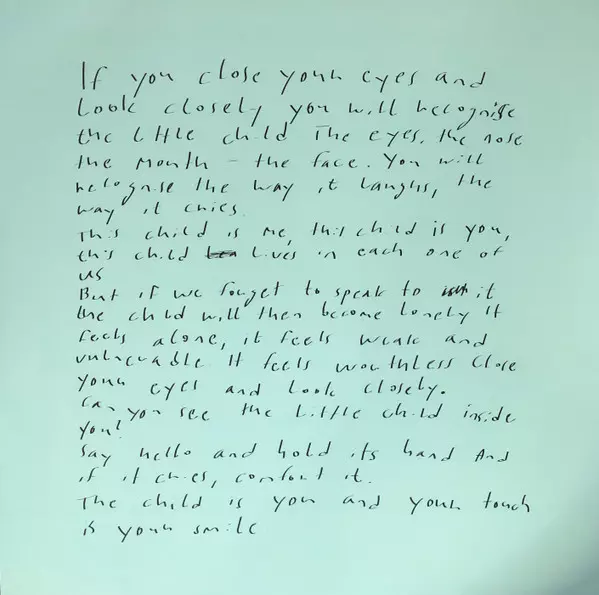 If you close your eyes and
Look closely you will recognise
the little child The eyes, the nose
the mouth – the face. You will
recognise the way it laughs, the
way it cries.
This child is me, this child is you,
this child lives in each one of
us
But if we forget to speak to it
the child will then become lonely It
feels alone, it feels weak and
vulnerable It feels worthless Close
your eyes and look closely.
Can you see the little child inside
you?
Say hello and hold its hand And
if it cries, comfort it.
The child is you and your touch
is your smile